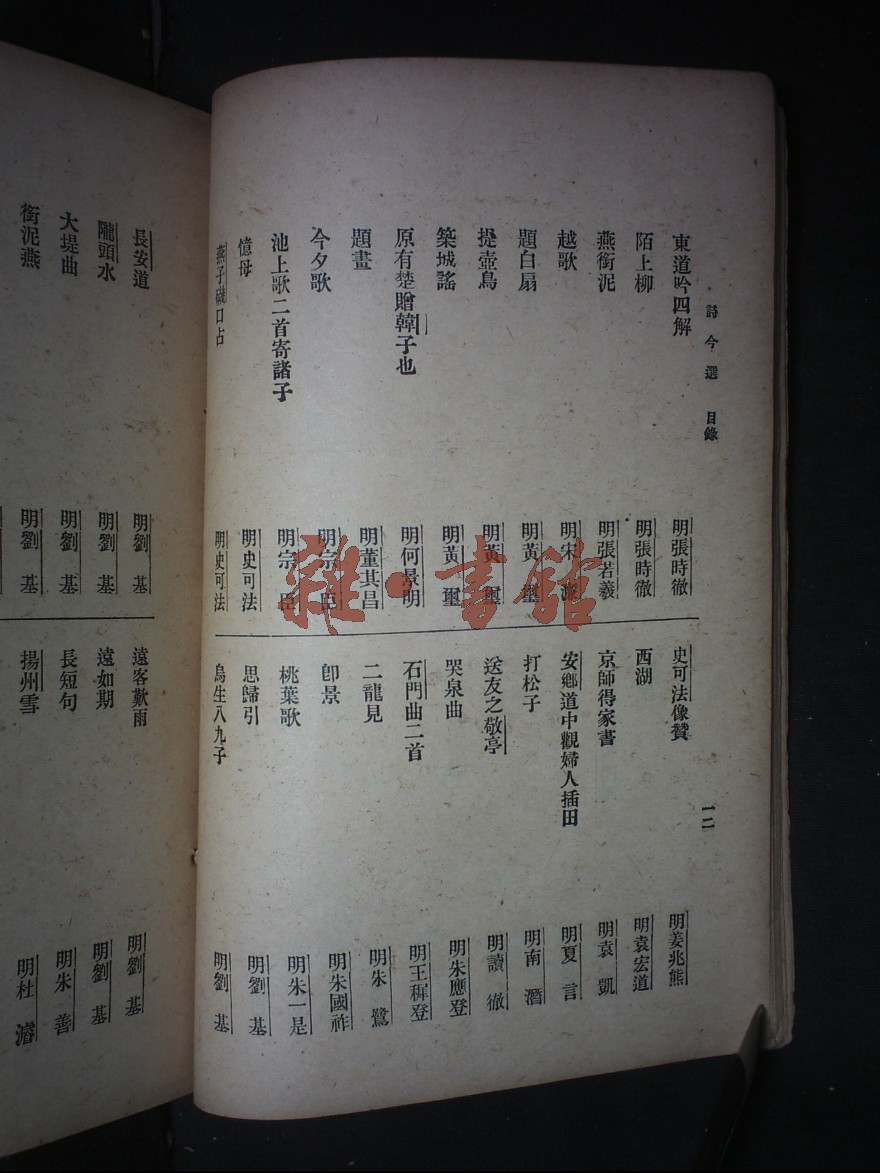 詩今選 目錄
一二
東道吟四解 明張時徹
陌上柳 明張時徹
燕銜泥 明張若羲
越歌 明宋濂
題白扇 明黃璽
提壺鳥 明黃璽
築城謠 明黃璽
原有楚贈韓子也 明何景明
題畫 明董其昌
今夕歌 明宗臣
池上歌二首寄諸子 明宗臣
憶母 明史可法
燕子磯口占 明史可法
史可法像贊 明姜兆熊
西湖 明袁宏道
京師得家書 明袁凱
安鄉道中觀婦人插田 明夏言
打松子 明南潛
送友之敬亭 明讀徹
哭泉曲 明朱應登
石門曲二首 明王穉登
二龍見 明朱鷺
卽景 明朱國祚
桃葉歌 明朱一是
思歸引 明劉基
烏生八九子 明劉基
長安道 明劉基
隴頭水 明劉基
大堤曲 明劉基
銜泥燕 明劉基
遠客歎雨 明劉基
遠如期 明劉基
長短句 明朱善
揚州雪 明杜濬
雜·書館